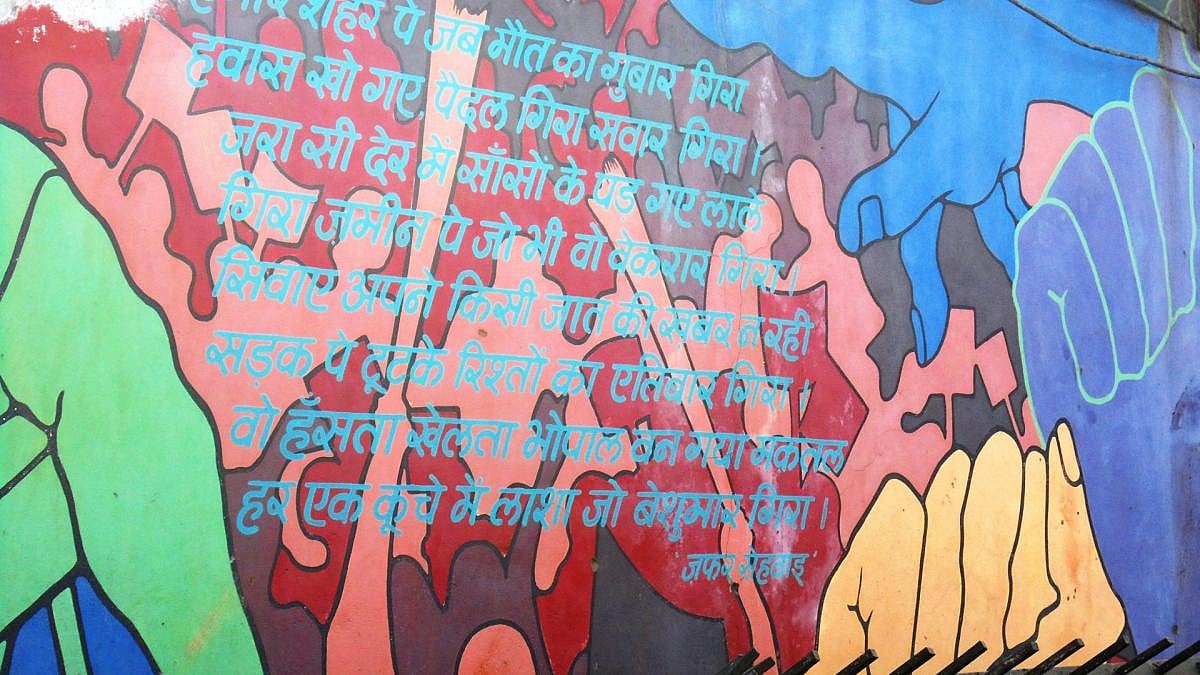 हमारे शहर पे जब मौत का गुबार गिरा
हवास खो गए, पैदल गिरा सवार गिरा।
जरा सी देर में साँसों के पड़ गए लाले
गिरा ज़मीन पे जो भी वो बेकरार गिरा।
सिवाए अपने किसी जात की खबर न रही
सड़क पे टूटके रिश्तों का एतिबार गिरा।
वो हँसता खेलता भोपाल बन गया मकतल
हर एक कूचे में लाशा जो बेशुमार गिरा।
'जफर सेहबाइ'